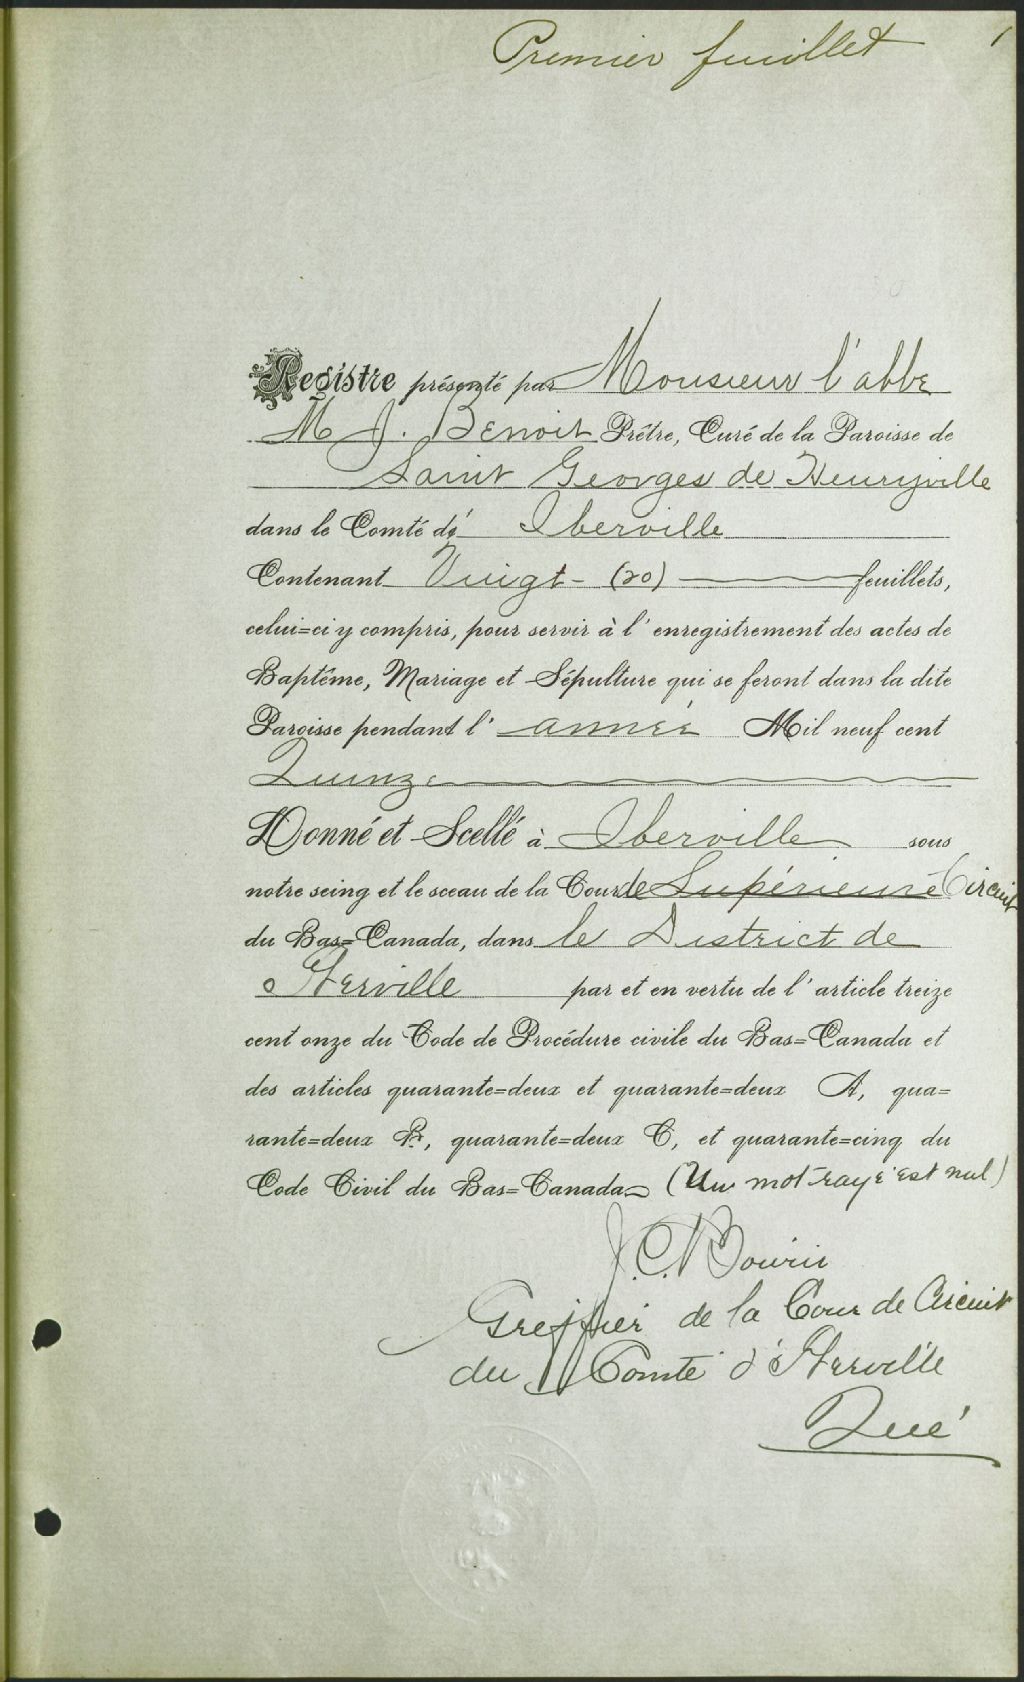 Premier feuillet 1
Registre présenté par Monsieur l'abbé
M J. Benoit Prêtre, Curé de la Paroisse de
Saint Georges de Henryville
dans le Comté d' Iberville
Contenant Vingt - (20) feuillets,
celui=ci y compris, pour servir à l'enregistrement des actes de
Baptême, Mariage et Sépulture qui se feront dans la dite
Paroisse pendant l' année Mil neuf cent
Quinze
Donné et Scellé à Iberville sous
notre seing et le sceau de la Cour de Supérieure Circuit
du Bas=Canada, dans le District de
Iberville par et en vertu de l'article treize
cent onze du Code de Procédure civile du Bas=Canada et
des articles quarante=deux et quarante=deux A, qua=
rante=deux B, quarante=deux C, et quarante=cinq du
Code Civil du Bas=Canada (Un mot rayé est nul)
J. C.
Greffier de la Cour de Circuit
du Comté d'Iberville
Qué